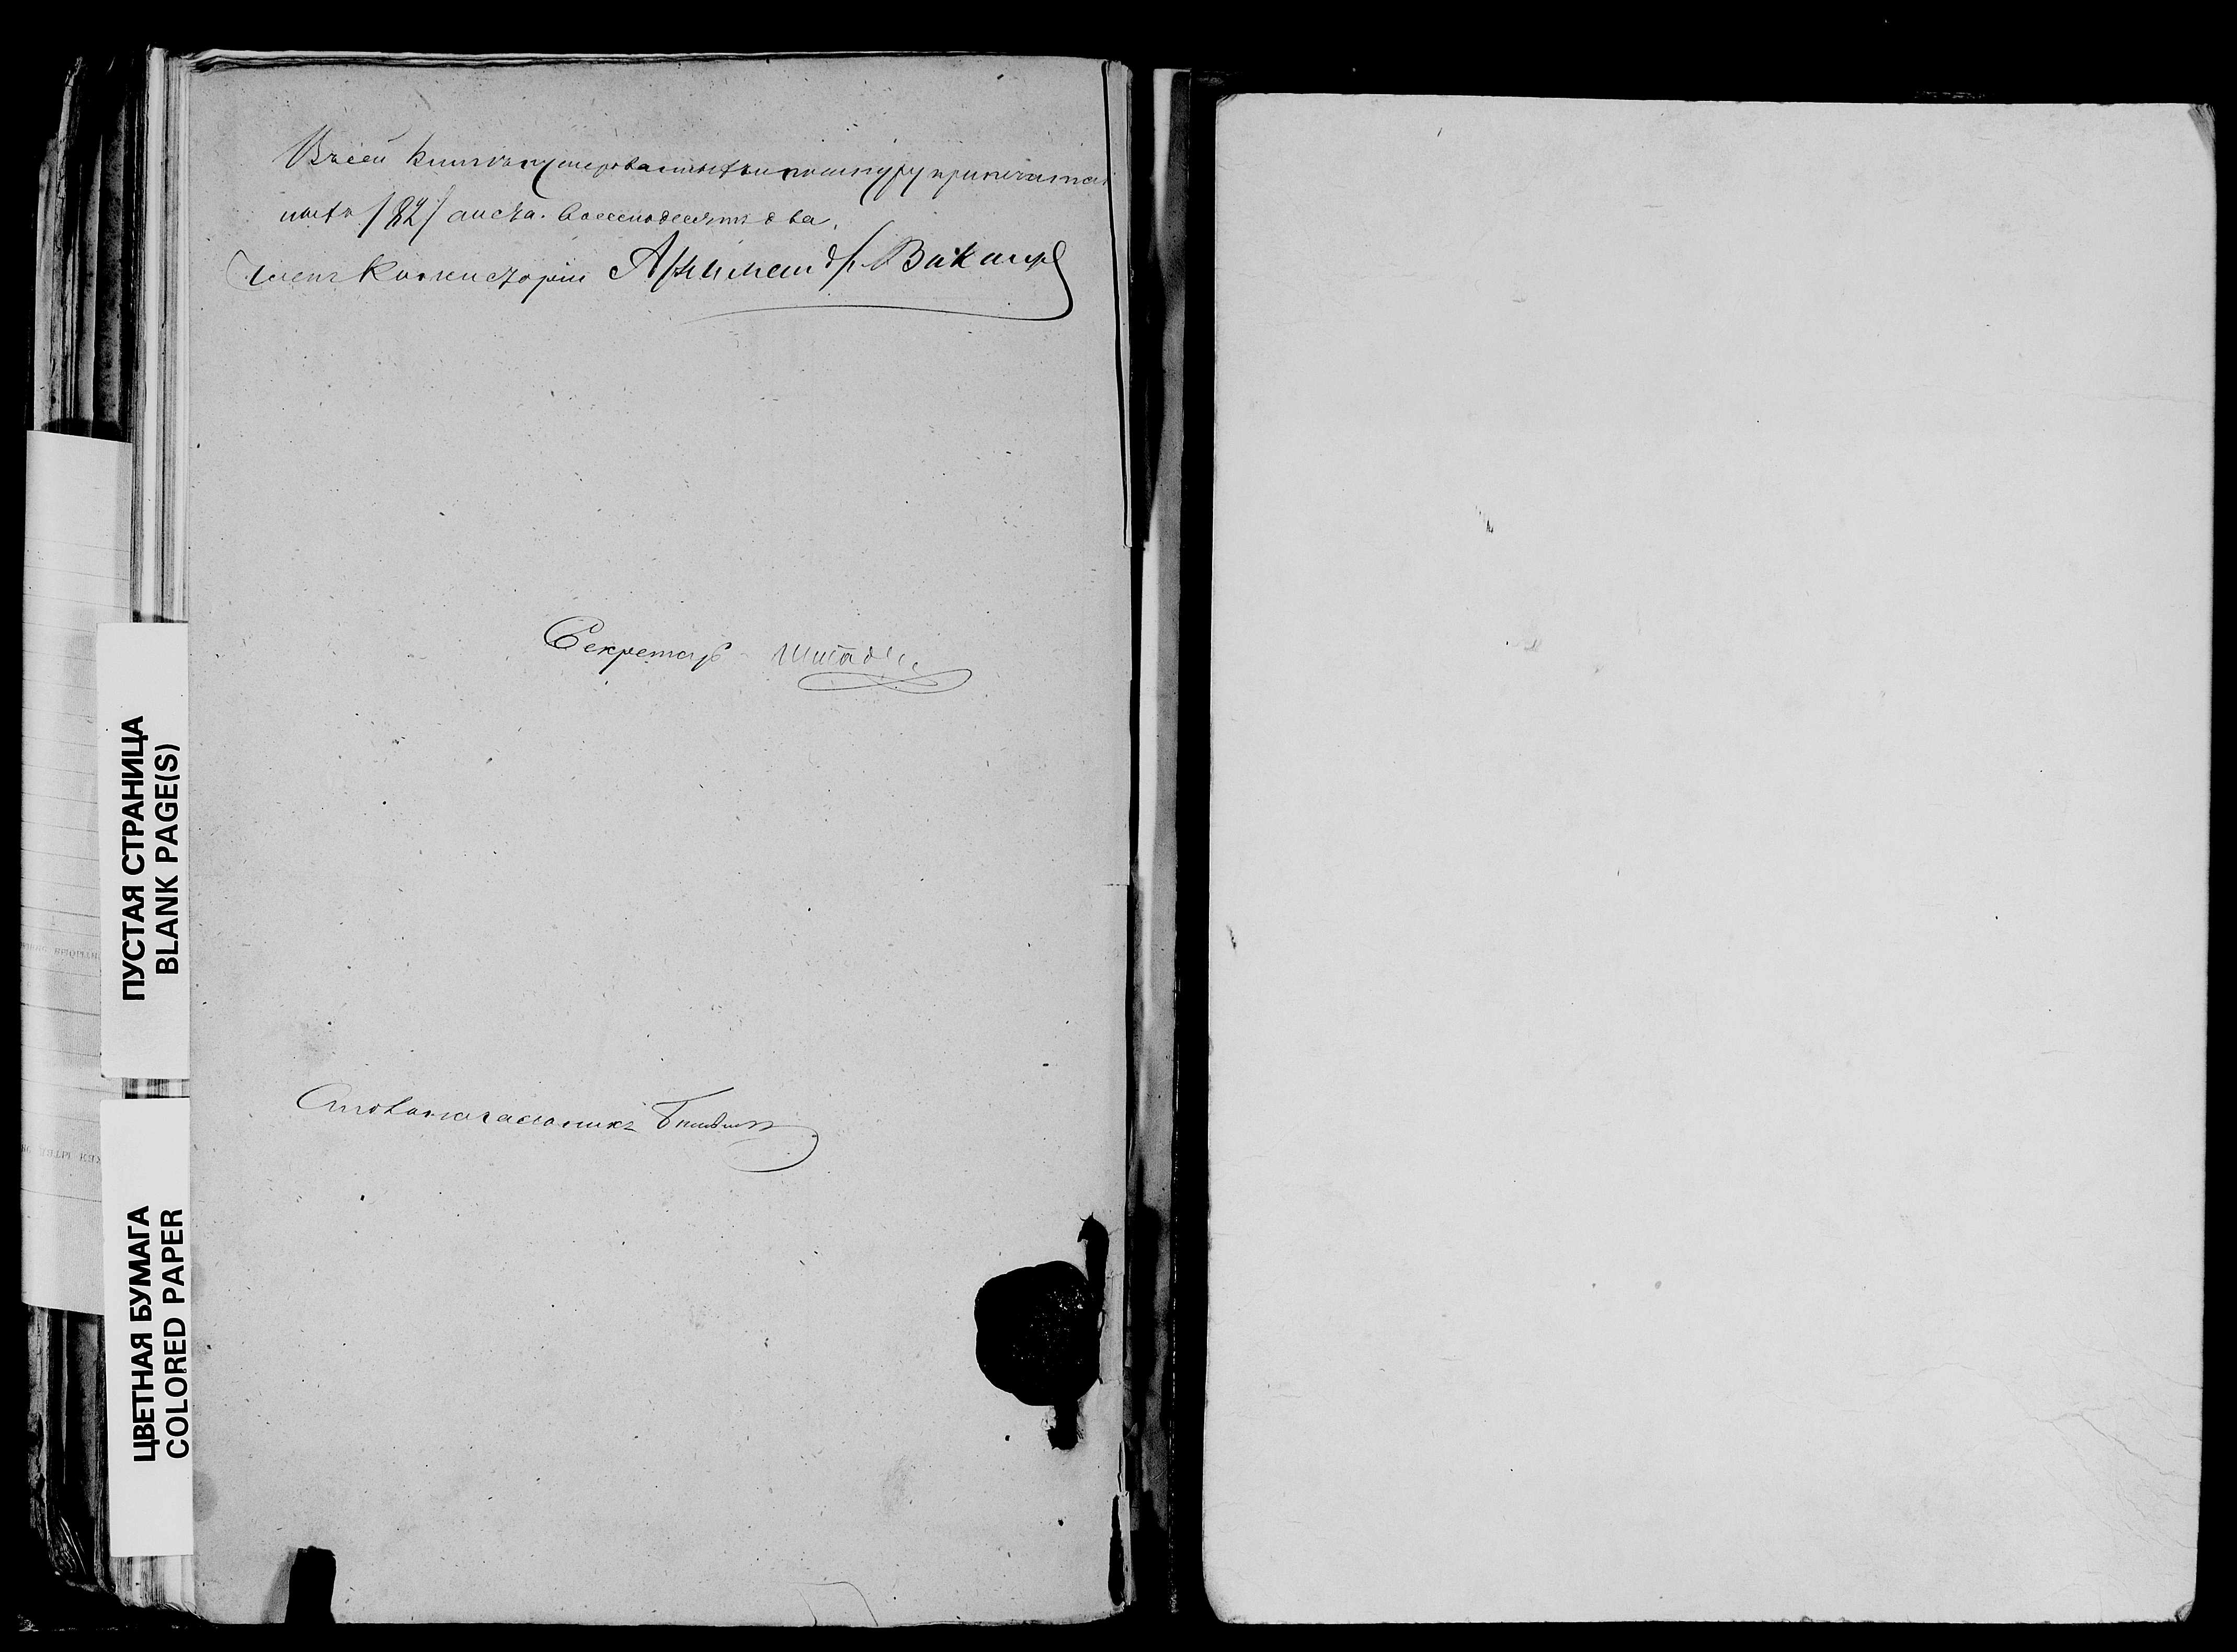 Въ сей книгѣ нумерованныхъ и по шнуру припечатан
ныхъ /82/ листа. Восемьдесятъ два.
Членъ Консисторіи Архимандр.
Секретарь
Столоначальникъ
ПУСТАЯ СТРАНИЦА
BLANK PAGE(S)
ЦВЕТНАЯ БУМАГА
COLORED PAPER